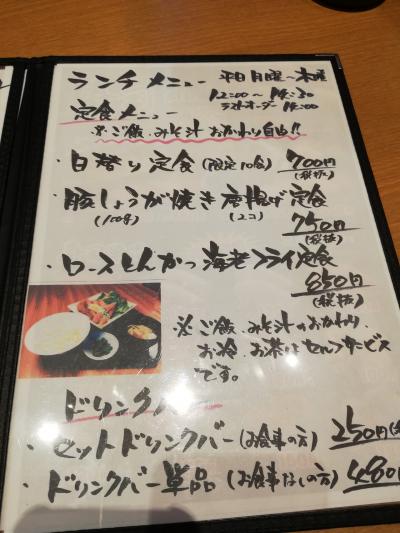 ランチメニュー 平日月曜〜木曜
12:00〜14:30
ラストオーダー 14:00
定食メニュー
※ご飯、みそ汁おかわり自由!!
・日替り定食(限定10食) 700円
(税抜)
・豚しょうが焼き唐揚げ定食
(100g) (2コ) 750円
(税抜)
・ロースとんかつ海老フライ定食
850円
(税抜)
※ご飯、みそ汁のおかわり、
お冷、お茶はセルフサービス
です。
ドリンクバー
・セットドリンクバー(お食事の方) 250円
・ドリンクバー単品(お食事なしの方) 480円